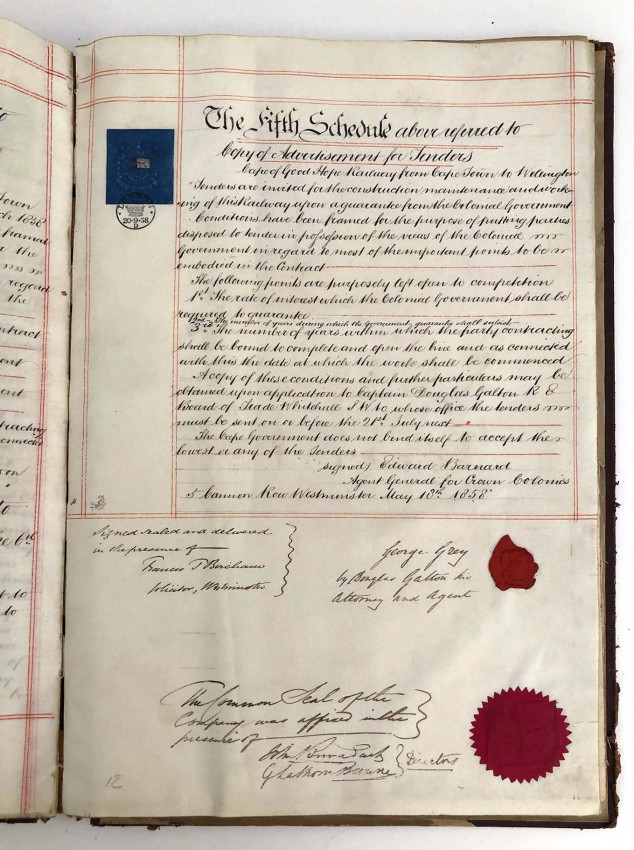 The Fifth Schedule above referred to
Copy of Advertisement for Tenders
Cape of Good Hope Railway from Cape Town to Wellington
Tenders are invited for the construction maintenance and work-
ing of this Railway upon a guarantee from the Colonial Government
Conditions have been framed for the purpose of putting parties
disposed to tender in possession of the views of the Colonial
Government in regard to most of the important points to be
embodied in the Contract
The following points are purposely left open to competition
1st The rate of interest which the Colonial Government shall be
required to guarantee
2nd The number of years during which the Government guarantee shall subsist
3rd The number of years within which the party contracting
shall be bound to complete and open the line and as connected
with this the date at which the work shall be commenced
A copy of these conditions and further particulars may be
obtained upon application to Captain Douglas Galton R E
Board of Trade Whitehall S W to whose office the tenders
must be sent on or before the 21st July next
The Cape Government does not bind itself to accept the
lowest or any of the Tenders
(signed) Edward Barnard
Agent General for Crown Colonies
5 Cannon Row Westminster May 18th 1858
20-9-58
Signed sealed and delivered
in the presence of
Francis T Bircham
Solicitor, Westminster
George Grey
by Douglas Galton his
Attorney and Agent
The Common Seal of the
Company was affixed in the
presence of
Directors
12